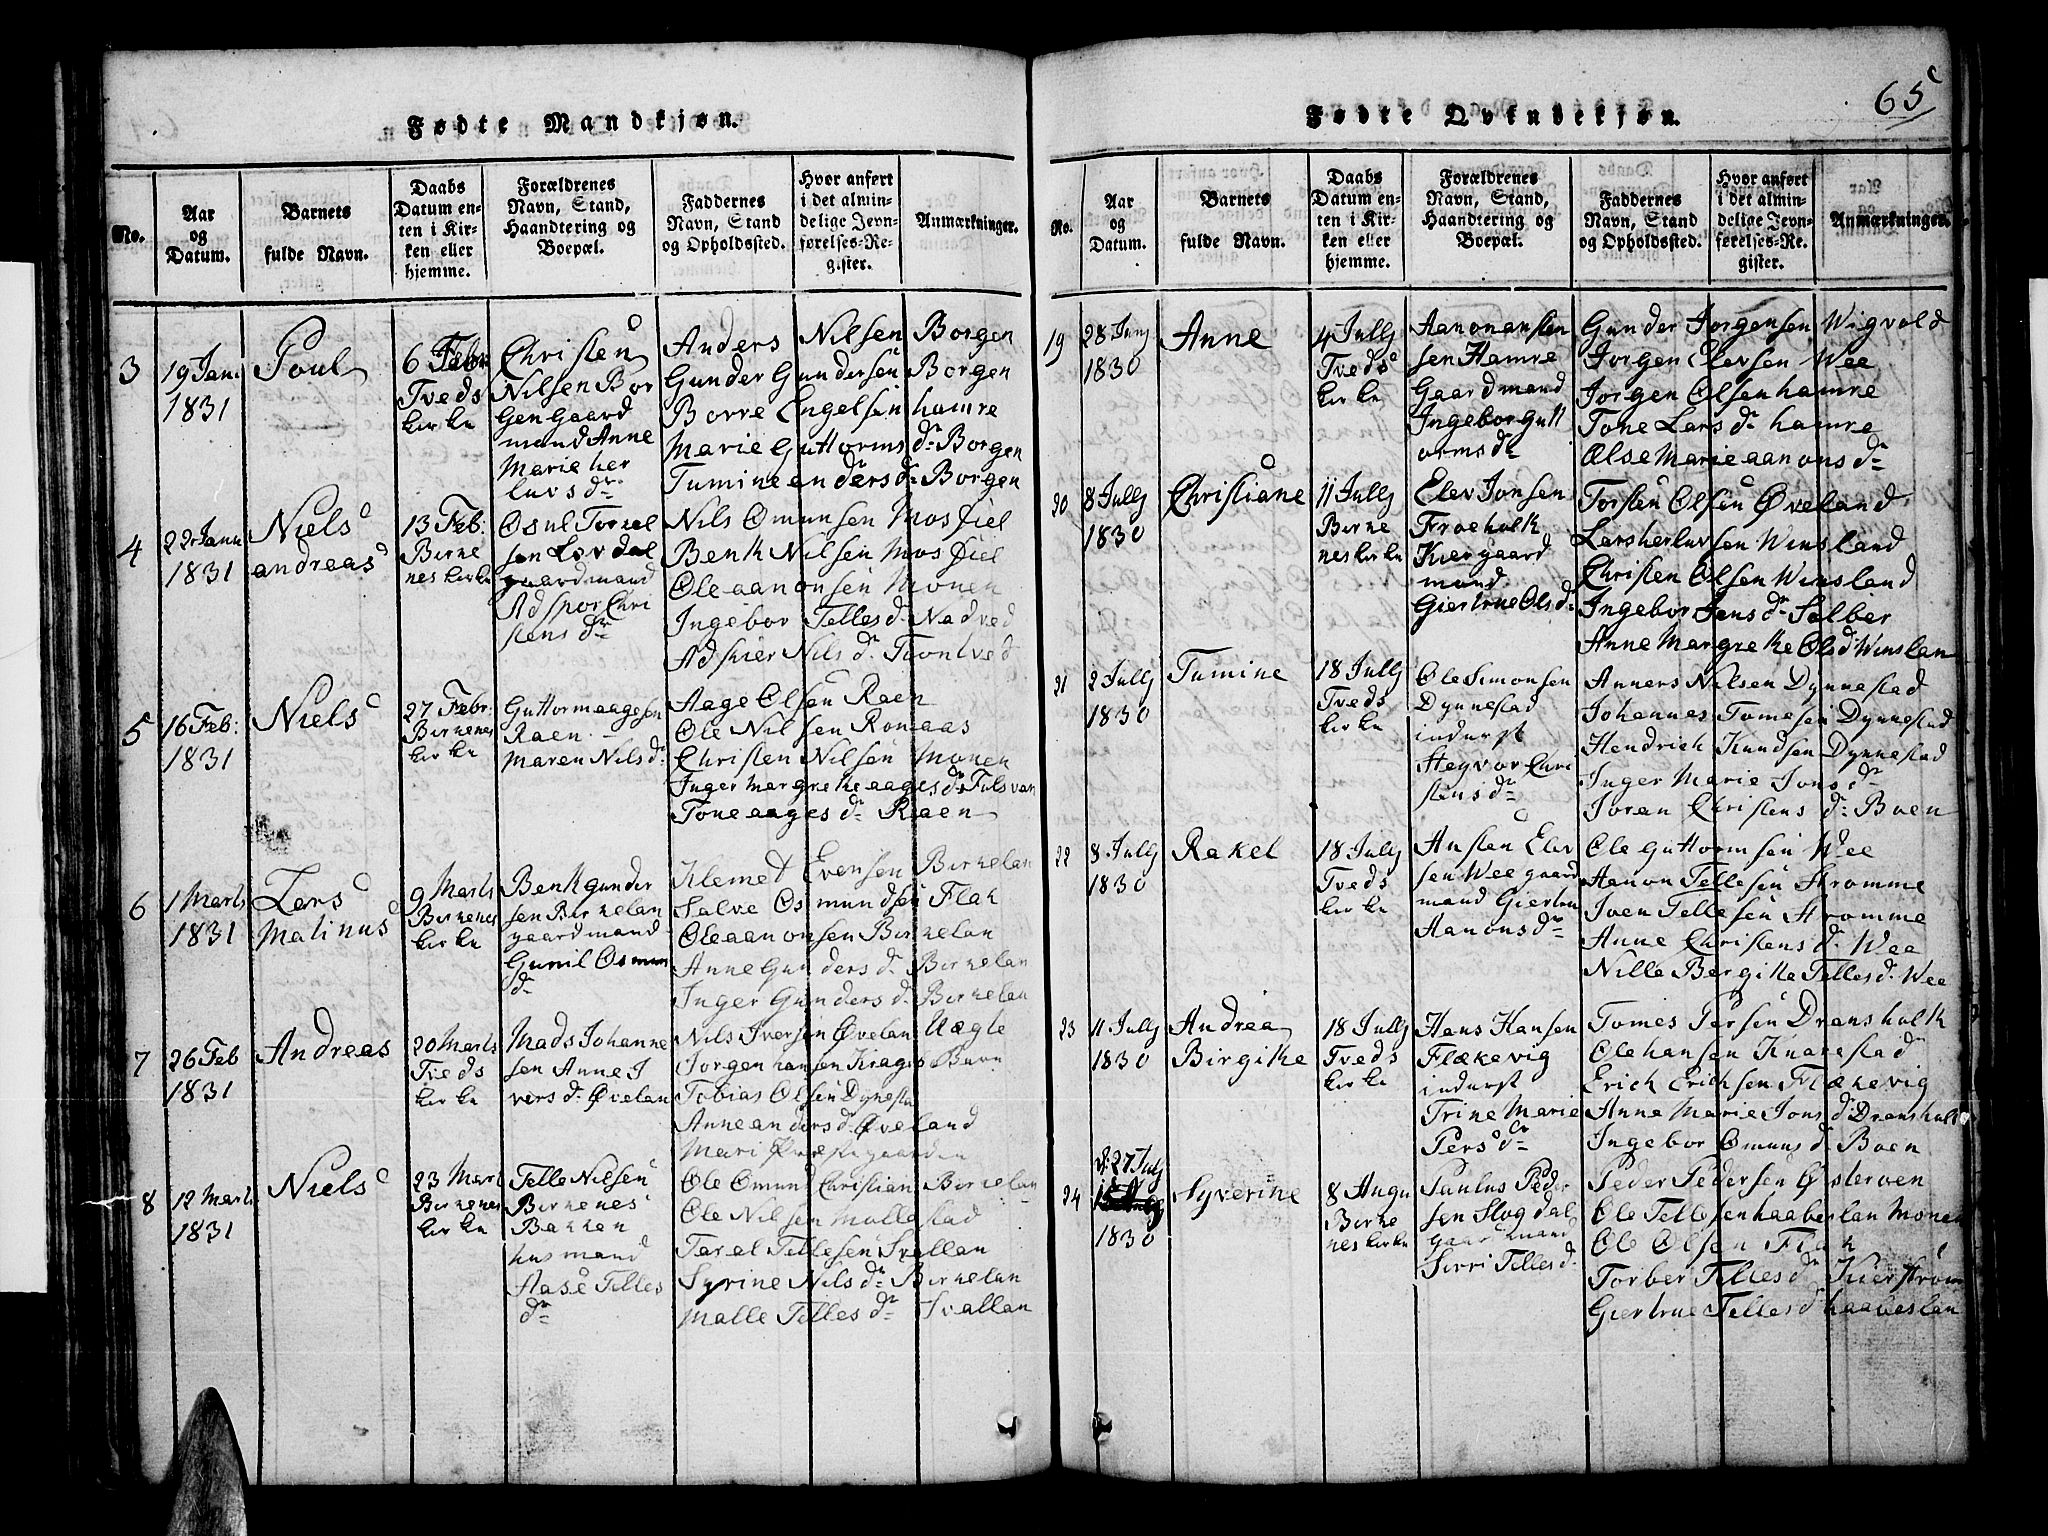 Fødte Mandkjøn.
No.
Aar
og
Datum.
Barnets
fulde Navn.
Daabs
Datum en-
ten i Kir-
ken eller
hjemme.
Forældrenes
Navn, Stand,
Haandtering og
Boepæl.
Faddernes
Navn, Stand
og Opholdssted.
Hvor anført
i det almin-
delige Jevn-
førelses-Re-
gister.
Anmærkninger.
3
19 Jan:
1831
Poul
6 Febr
Tveds
kirke
Christen
Nilsen Bor
gen gaard
mand Anne
Marie her
luvs dr
Anders Nilsen Borgen
Gunder Gundersen Borgen
Borre Engelsen hamre
Marie Guttorms dr Borgen
Tumine anders dr Borgen
4
22 Jann
1831
Niels
andreas
13 Feb:
Birke
nes kirke
Osul Torkel
sen Lovdal
gaardmand
Adspor Chri
stens dr
Nils Omunsen Mosfiel
Benk Nilsen Mosfiel
Ole aanonsen Monen
Ingebor Telles d. Nadved
Adskier Nils dr. Tvontved
5
16 Feb:
1831
Niels
27 Febr:
Birkenes
kirke
Guttorm aagesen
Raen
Maren Nils dr
Aage Olsen Raen
Ole Nilsen Romaas
Christen Nilsen Monen
Inger Margrethe aages dr Fulsvan
Tone aages dr Raen
6
1 Marts
1831
Lars
Malinus
9 Marts
Birkenes
kirke
Benk gunder
sen Birkelan
gaardmand
Gunil Osmun
dr
Klemet Evensen Birkelan
Salve Osmundsen Flak
Ole aanonsen Birkelan
Anne Gunders dr Birkelan
Inger Gunders d. Birkelan
7
26 Feb
1831
Andreas
20 Marts
Tveds
kirke
Mads Johanne
sen Anne I
vers d. Øvelan
Nils Iversen Øvelan Uægte
Jorgen hansen Kragis Barn
Tobias Olsen Dynesta
Anne anders d. Øveland
Mari Prestegaarden
8
12 Marts
1831
Niels
23 Marts
Birkenes
kirke
Telle Nilsen
Birkenes
Bakken
husmand
Aase Telles
dr
Ole Omund Christian Birkelan
Ole Nilsen Mollestad
Tarel Tellesen Svallan
Syrine Nils dr Birkelan
Malle Telles dr Svallan
65
Fødte Qvindekjøn.
No.
Aar
og
Datum.
Barnets
fulde Navn.
Daabs
Datum en-
ten i Kir-
ken eller
hjemme.
Forældrenes
Navn, Stand,
Haandtering og
Boepæl.
Faddernes
Navn, Stand
og Opholdssted.
Hvor anført
i det almin-
delige Jevn-
førelses-Re-
gister.
Anmærkninger.
19
28 Juny
1830
Anne
4 July
Tveds
kirke
Aanon anslen
sen Hamre
Gaardmand
Ingebor gutt
orms dr
Gunder Jorgensen Wigvold
Jorgen Elevsen Wee
Jorgen Olsen hamre
Tone Lars dr hamre
Olse Marie aanons dr
20
8 July
1830
Christiane
11 July
Birke
nes kirke
Elev Jonsen
Froeholk
Kiergaard
mand
Giertrue Ols dr
Torsten Olsen Øveland
Lars herluvsen Winsland
Christen Olsen Winsland
Ingebor Jens dr Salber
Anne Margrethe Ols d Winslan
21
2 July
1830
Tumine
18 July
Tveds
kirke
Ole Simonsen
Dynnestad
inderst
Hegvor Chri
stens dr
Anners Nilsen Dynnestad
Johannes Tomesen Dynnestad
Hendrich Knudsen Dynnestad
Inger Marie Jons dr
Joran Christens dr Boen
22
8 July
1830
Rakel
18 July
Tveds
kirke
Ansten Elev
sen Wee gaard
mand Giertru
Aanons dr
Ole guttormsen Wee
Aanon Tellesen Stromme
Iven Tellesen Stromme
Anne Christens dr Wee
Nille Bergithe Telles d. Wee
23
11 July
1830
Andrea
Birgithe
18 July
Tveds
kirke
Hans Hansen
Flækevig
inderst
Trine Marie
Pers dr
Tomes Persen Dransholk
Ole hansen Knarestad
Erich Erichsen Flækevig
Anne Marie Jons dr Dransholk
Ingebor Omuns d Boen
24
d: 27 July
1830
Syverine
8 Augu
Birke
nes kirke
Paulus Peder
sen Slogdal
gaardmand
Sirri Telles d.
Peder Pedersen Østerven
Ole Tellesen haabeslan Monen
Ole Olsen Flak
Torber Telles dr Kierstrom
Giertrue Telles d haabeslan